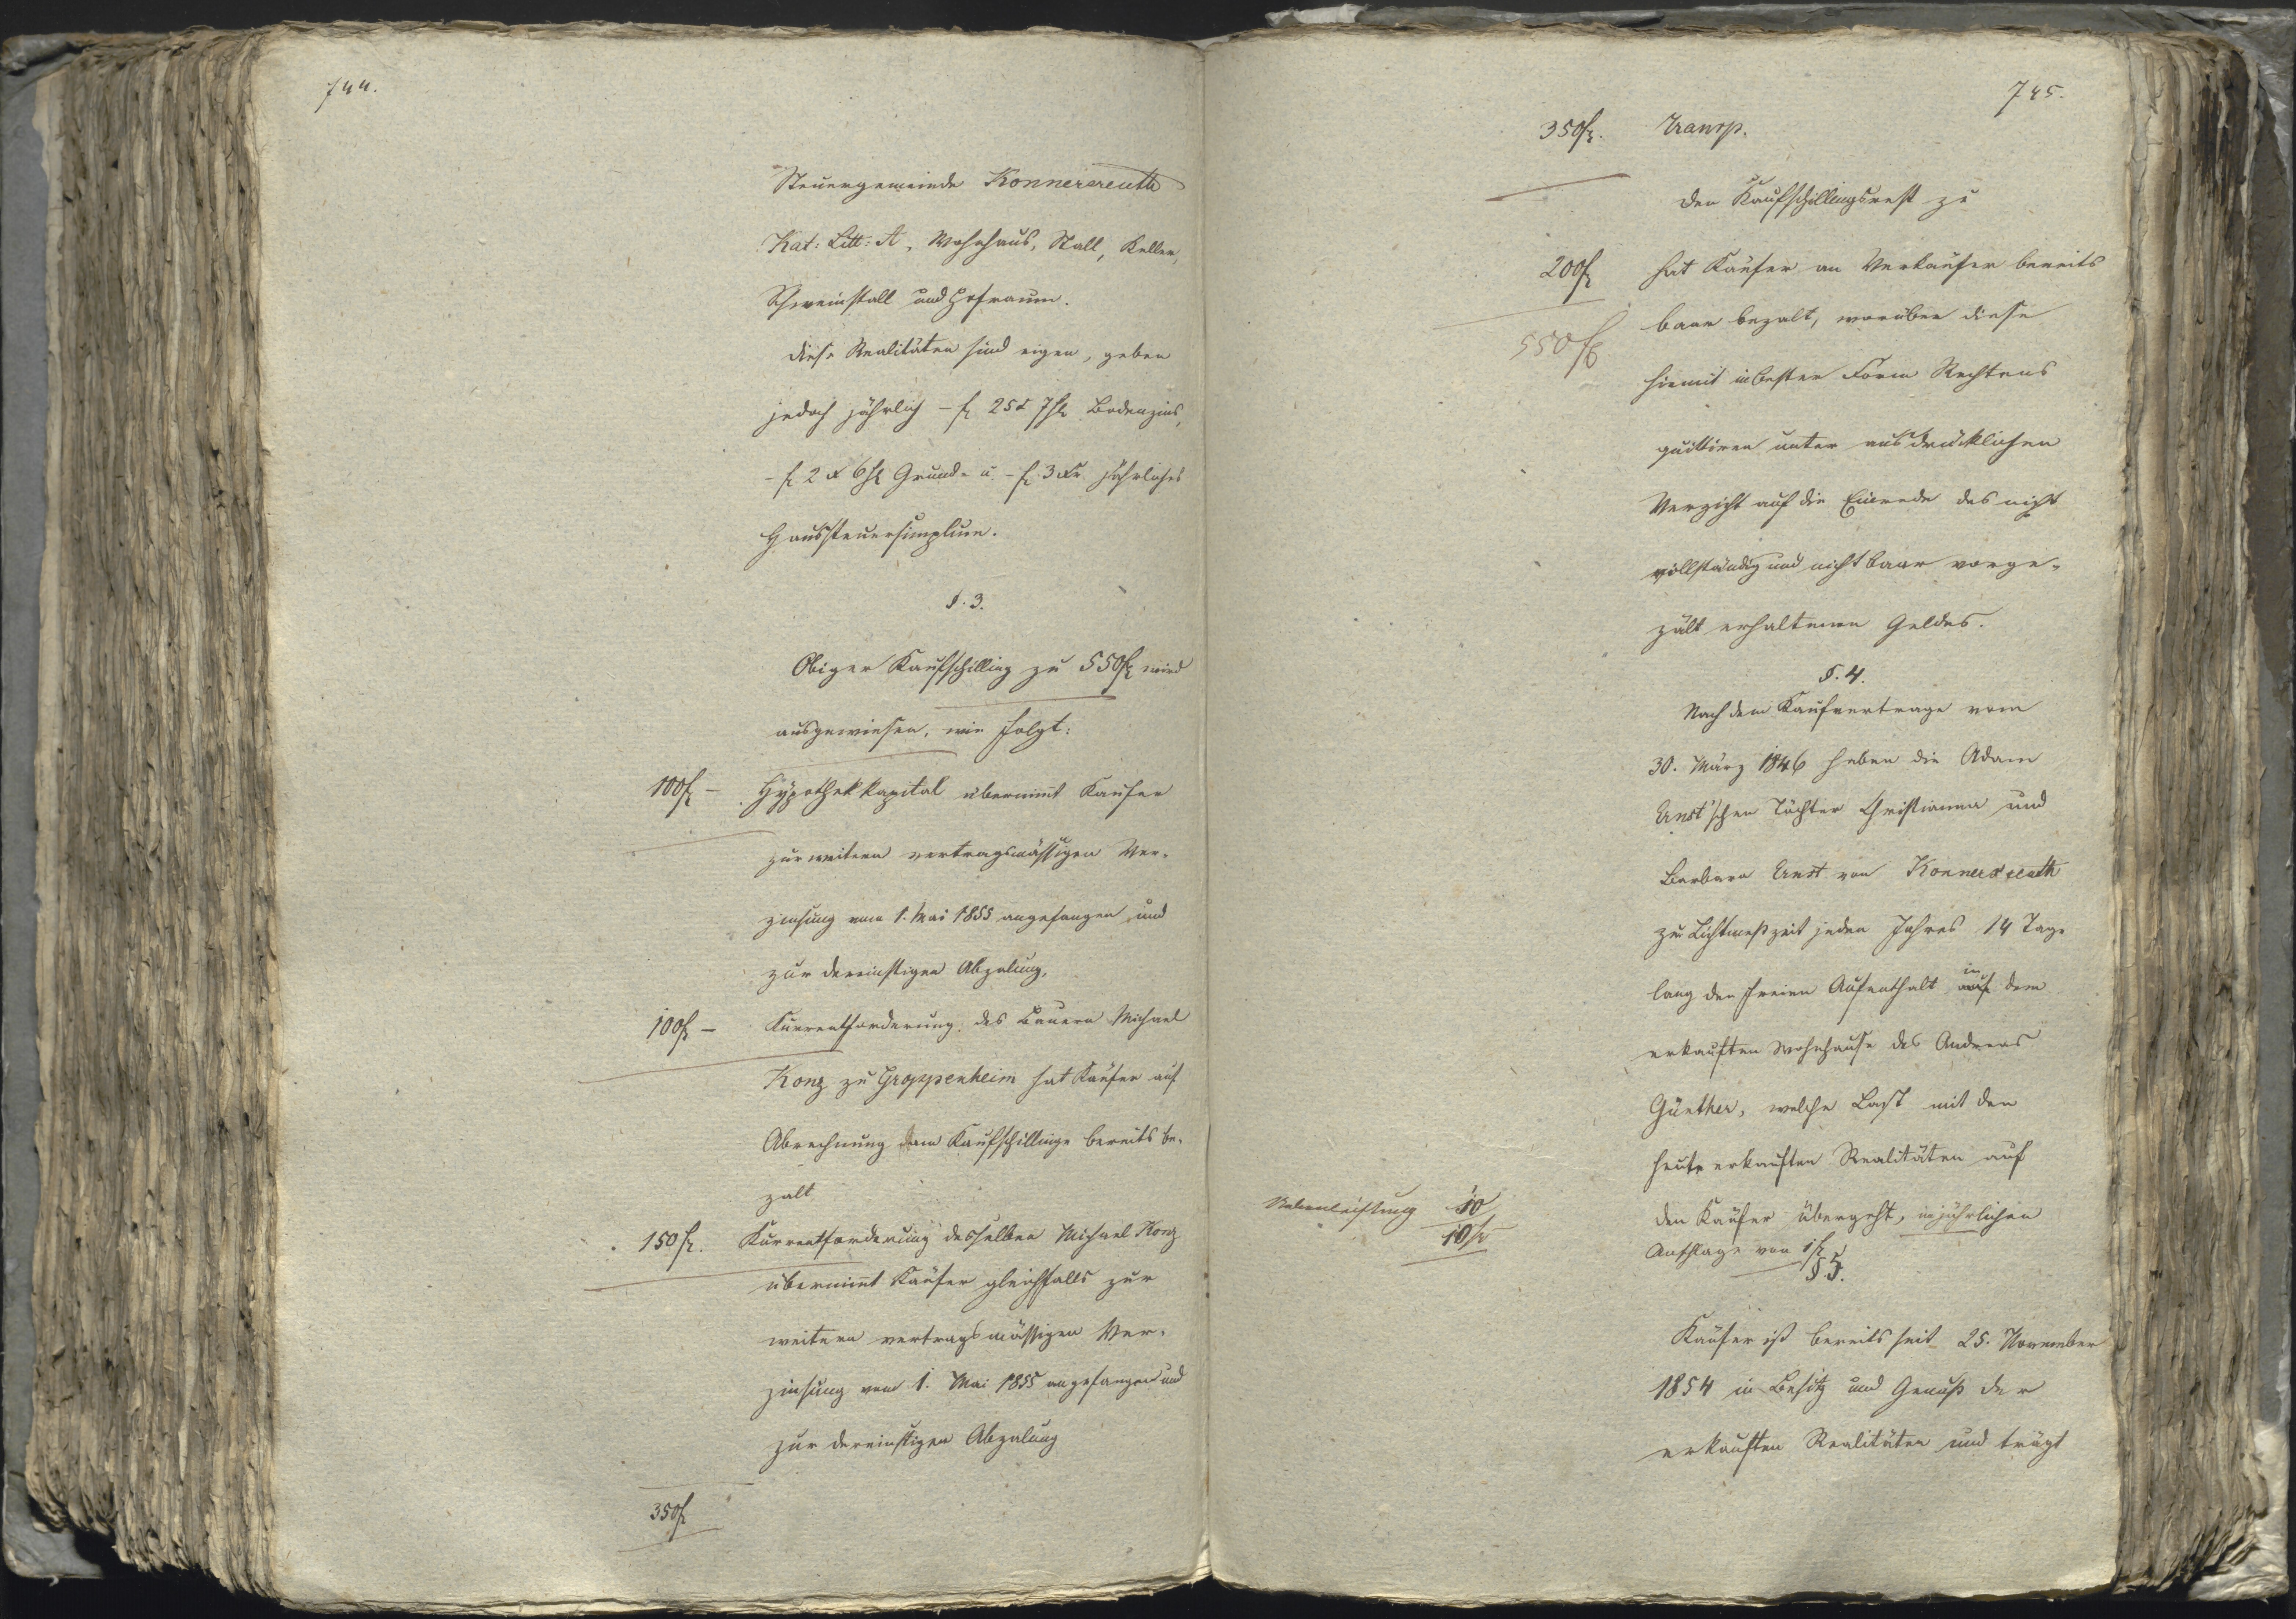 744.
Steuergemeinde Konnersreuth
Kat: Litt: A, Wohnhaus, Stall, Keller,
Schweinstall und Hofraum.
Diese Realitäten sind eigen, geben
jedoch jährlich – f 25 x 7 hl Bodenzins,
– f 2 x 6 hl Grund- u. – f 3 xr jährliches
Haussteuersimplum.
§. 3.
Obiger Kaufschilling zu 550 f wird
ausgewiesen, wie folgt:
100 f – Hypothekkapital übernimt Käufer
zur weitern vertragsmässigen Ver-
zinsung vom 1. Mai 1855 angefangen und
zur dereinstigen Abzalung,
100 f – Kurrentforderung des Bauern Michael
Konz zu Groppenheim hat Käufer auf
Abrechnung dem Kaufschillinge bereits be-
zalt
150 f. Kurrentforderung desselben Michael Konz
übernimt Käufer gleichfalls zur
weitern vertragsmässigen Ver-
zinsung vom 1. Mai 1855 angefangen und
zur dereinstigen Abzalung
350 f
745.
350 f. Transp.
Den Kaufschillingsrest zu
200 f hat Käufer an Verkäufer bereits
550 f baar bezalt, worüber diese
hiemit in bester Form Rechtens
quittiren unter ausdrücklichen
Verzicht auf die Einrede des nicht
vollständig und nicht baar vorge-
zält erhaltenen Geldes.
§. 4.
Nach dem Kaufvertrage vom
30. März 1846 haben die Adam
Ernst'schen Töchter Christianna und
Barbara Ernst von Konnersreuth
zu Lichtmeßzeit jeden Jahres 14 Tage
lang den freien Aufenthalt auf in dem
erkauften Wohnhause des Andreas
Günther, welche Last mit den
heute erkauften Realitäten auf
Nebenleistung 10 den Käufer übergeht, im jährlichen
10 f Anschlage von 1 f
§ 5.
Käufer ist bereits seit 25. November
1854 in Besitz und Genuß der
erkauften Realitäten und trägt